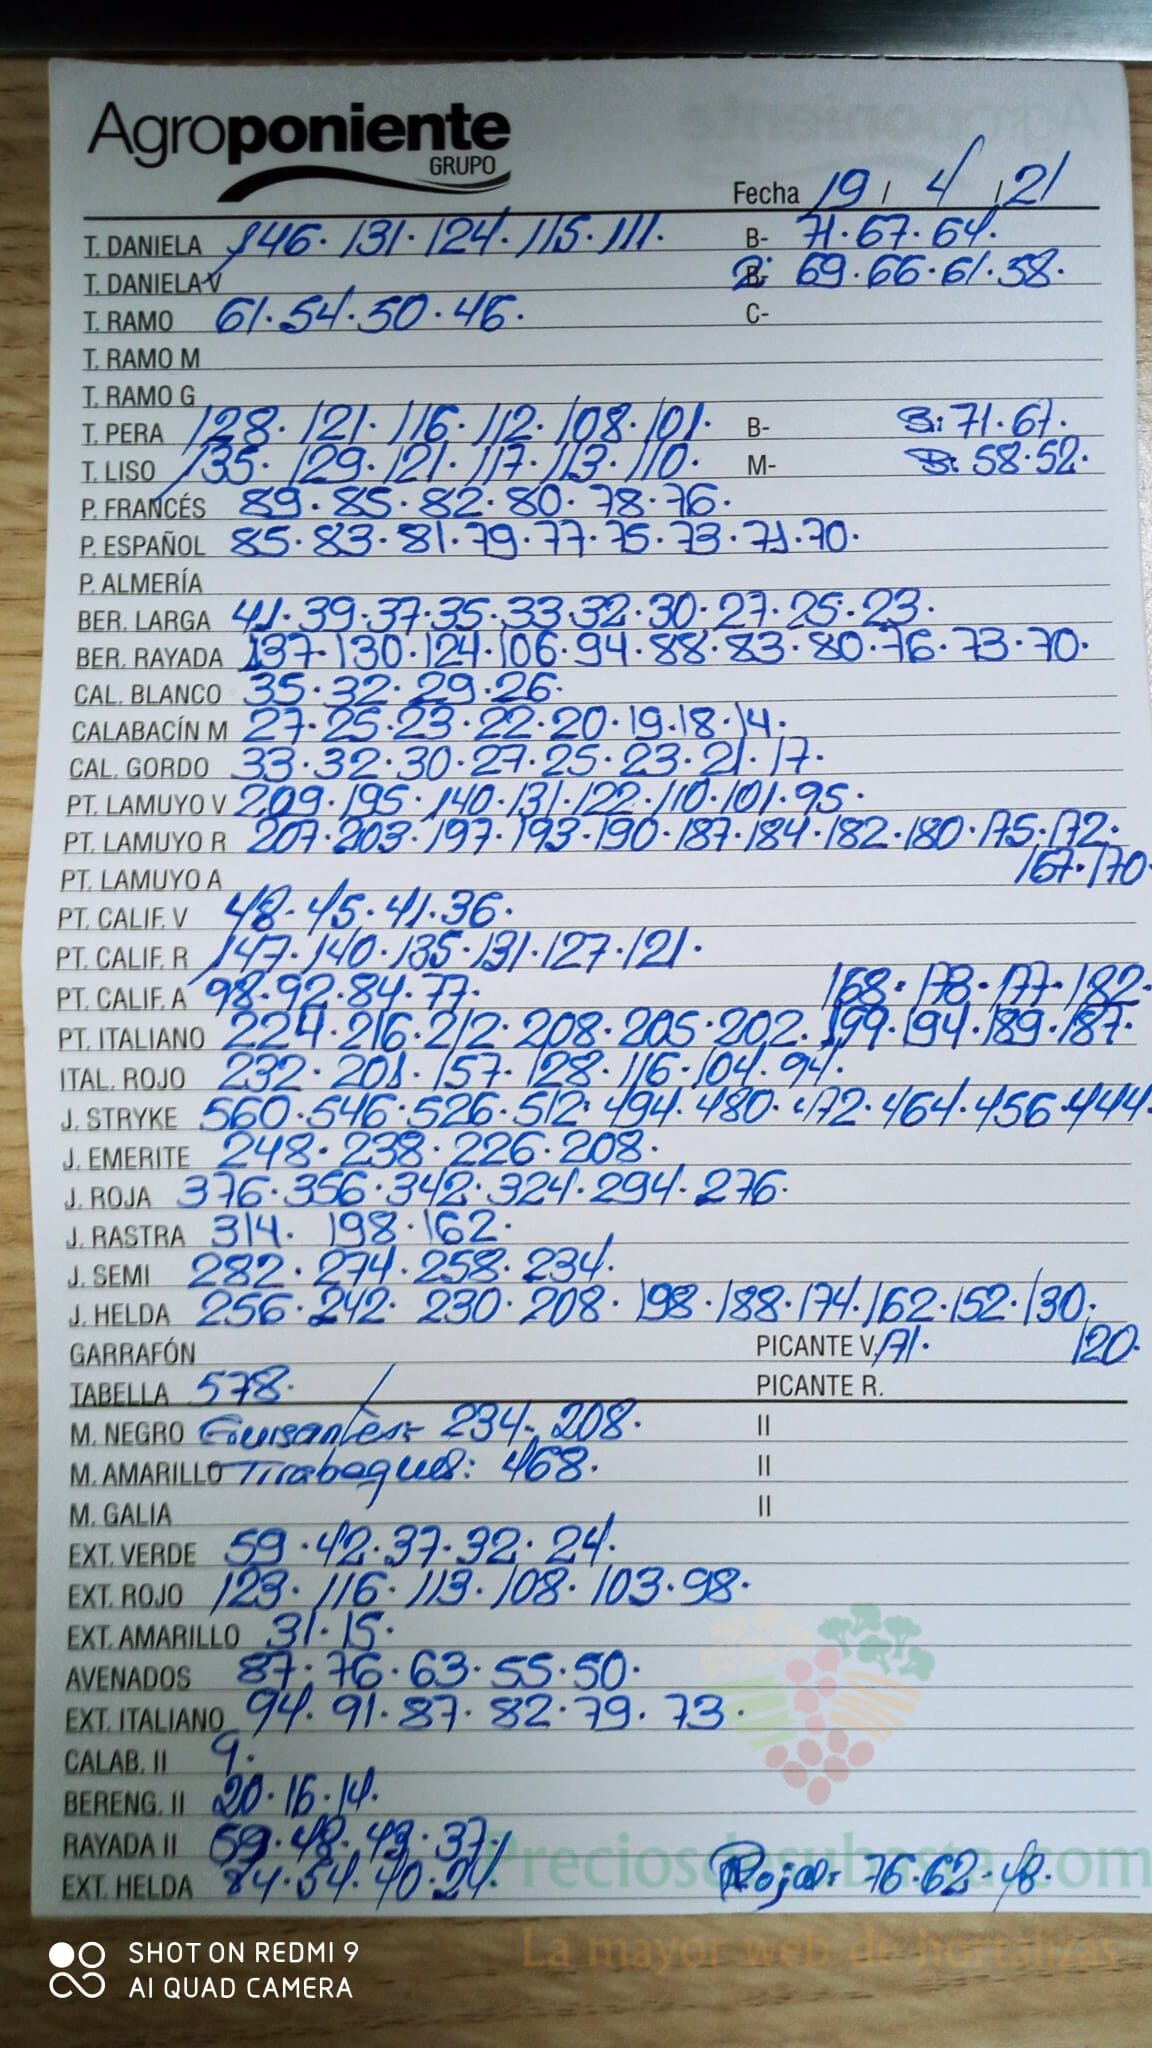 Agroponiente
GRUPO
Fecha 19 / 4 / 21
T. DANIELA 146. 131. 124. 115. 111. B- 71. 67. 64.
T. DANIELA V 2: 69. 66. 61. 58.
T. RAMO 61. 54. 50. 46. C-
T. RAMO M
T. RAMO G
T. PERA 128. 121. 116. 112. 108. 101. B- B: 71. 67.
T. LISO 135. 129. 121. 117. 113. 110. M- B: 58. 52.
P. FRANCÉS 89. 85. 82. 80. 78. 76.
P. ESPAÑOL 85. 83. 81. 79. 77. 75. 73. 71. 70.
P. ALMERÍA
BER. LARGA 41. 39. 37. 35. 33. 32. 30. 27. 25. 23.
BER. RAYADA 137. 130. 124. 106. 94. 88. 83. 80. 76. 73. 70.
CAL. BLANCO 35. 32. 29. 26.
CALABACÍN M 27. 25. 23. 22. 20. 19. 18. 14.
CAL. GORDO 33. 32. 30. 27. 25. 23. 21. 17.
PT. LAMUYO V 209. 195. 140. 131. 122. 110. 101. 95.
PT. LAMUYO R 207. 203. 197. 193. 190. 187. 184. 182. 180. 175. 172.
PT. LAMUYO A 167. 170.
PT. CALIF. V 48. 45. 41. 36.
PT. CALIF. R 147. 140. 135. 131. 127. 121.
PT. CALIF. A 98. 92. 84. 77. 168. 178. 177. 182.
PT. ITALIANO 224. 216. 212. 208. 205. 202. 199. 194. 189. 187.
ITAL. ROJO 232. 201. 157. 128. 116. 104. 94.
J. STRYKE 560. 546. 526. 512. 494. 480. 472. 464. 456. 444.
J. EMERITE 248. 238. 226. 208.
J. ROJA 376. 356. 342. 324. 294. 276.
J. RASTRA 314. 198. 162.
J. SEMI 282. 274. 258. 234.
J. HELDA 256. 242. 230. 208. 198. 188. 174. 162. 152. 130.
GARRAFÓN PICANTE V. 171. 120.
TABELLA 578. PICANTE R.
M. NEGRO Guisantes: 234. 208. II
M. AMARILLO Tirabeques: 468. II
M. GALIA II
EXT. VERDE 59. 42. 37. 32. 24.
EXT. ROJO 123. 116. 113. 108. 103. 98.
EXT. AMARILLO 31. 15.
AVENADOS 87. 76. 63. 55. 50.
EXT. ITALIANO 94. 91. 87. 82. 79. 73.
CALAB. II 9.
BERENG. II 20. 16. 14.
RAYADA II 59. 48. 43. 37.
EXT. HELDA 84. 54. 40. 24. Roja: 76. 62. 48.
Preciosdesubasta.com
La mayor web de hortalizas
SHOT ON REDMI 9
AI QUAD CAMERA